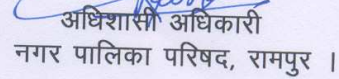 अधिशासी अधिकारी
नगर पालिका परिषद, रामपुर ।